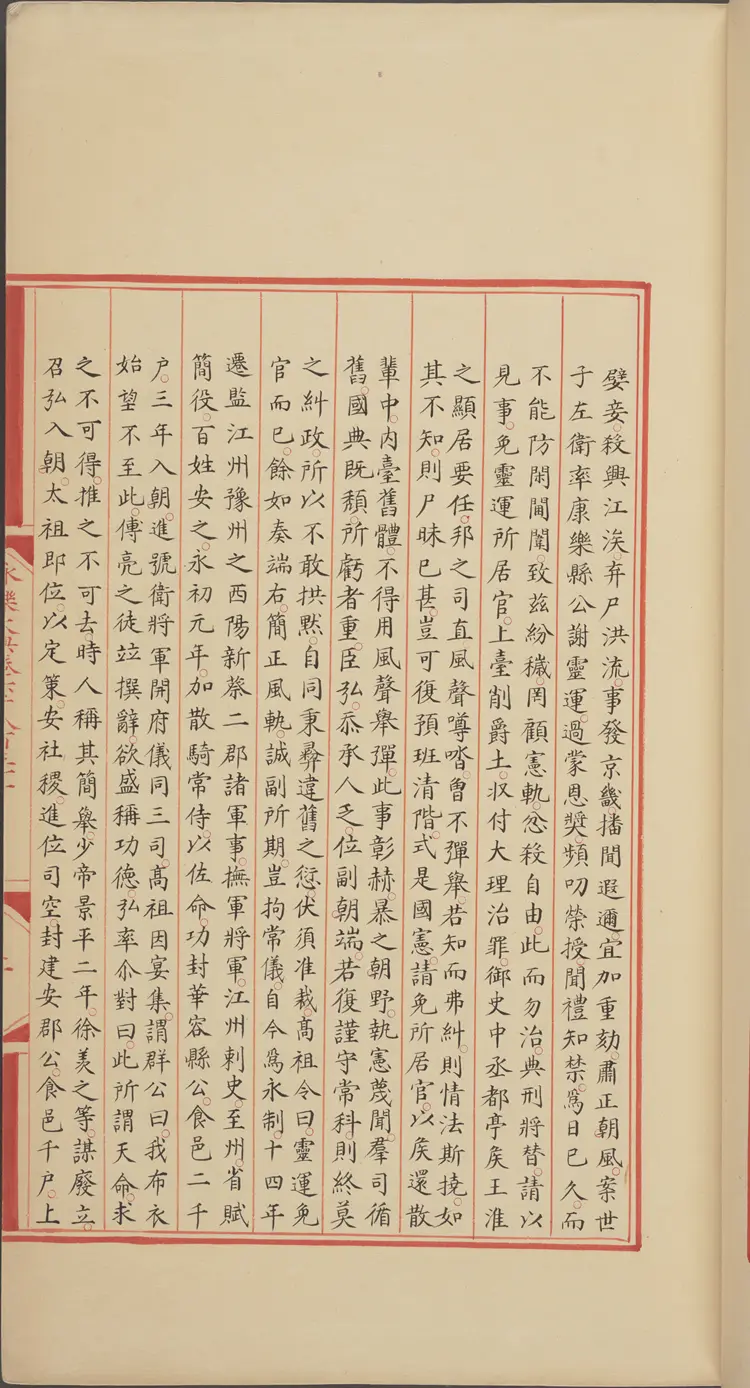 嬖妾殺興江涘弃尸洪流事發京畿播聞遐邇宜加重劾肅正朝風案世
子左衛率康樂縣公謝靈運過蒙恩奬頻叨榮授聞禮知禁爲日已久而
不能防閑閫闈致茲紛穢罔顧憲軌忿殺自由此而勿治典刑將替請以
見事免靈運所居官上臺削爵土収付大理治罪御史中丞都亭矦王淮
之顯居要任邦之司直風聲噂𠴲曾不彈舉若知而弗糾則情法斯撓如
其不知則尸昧已甚豈可復預班清階式是國憲請免所居官以矦還散
輩中内臺舊體不得用風聲舉彈此事彰赫暴之朝野執憲蔑聞羣司循
舊國典既頽所虧者重臣弘忝承人乏位副朝端若復謹守常科則終莫
之糾政所以不敢拱默自同秉彝違舊之愆伏須准裁髙祖令曰靈運免
官而已餘如奏端右簡正風軌誠副所期豈拘常儀自今爲永制十四年
遷監江州豫州之西陽新蔡二郡諸軍事撫軍將軍江州剌史至州省賦
簡役百姓安之永初元年加散騎常侍以佐命功封華容縣公食邑二千
户三年入朝進號衛將軍開府儀同三司髙祖因宴集謂群公曰我布衣
始望不至此傅亮之徒竝撰辭欲盛稱功德弘率尒對曰此所謂天命求
之不可得推之不可去時人稱其簡舉少帝景平二年徐羨之等謀廢立
召弘入朝太祖即位以定策安社稷進位司空封建安郡公食邑千户上